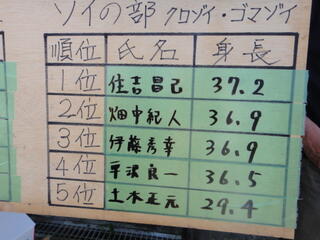 ソイの部 クロゾイ・ゴマゾイ
順位 氏名 身長
1位 住吉昌己 37.2
2位 畑中紀人 36.9
3位 伊藤秀幸 36.9
4位 平沢良一 36.5
5位 土木正元 29.4